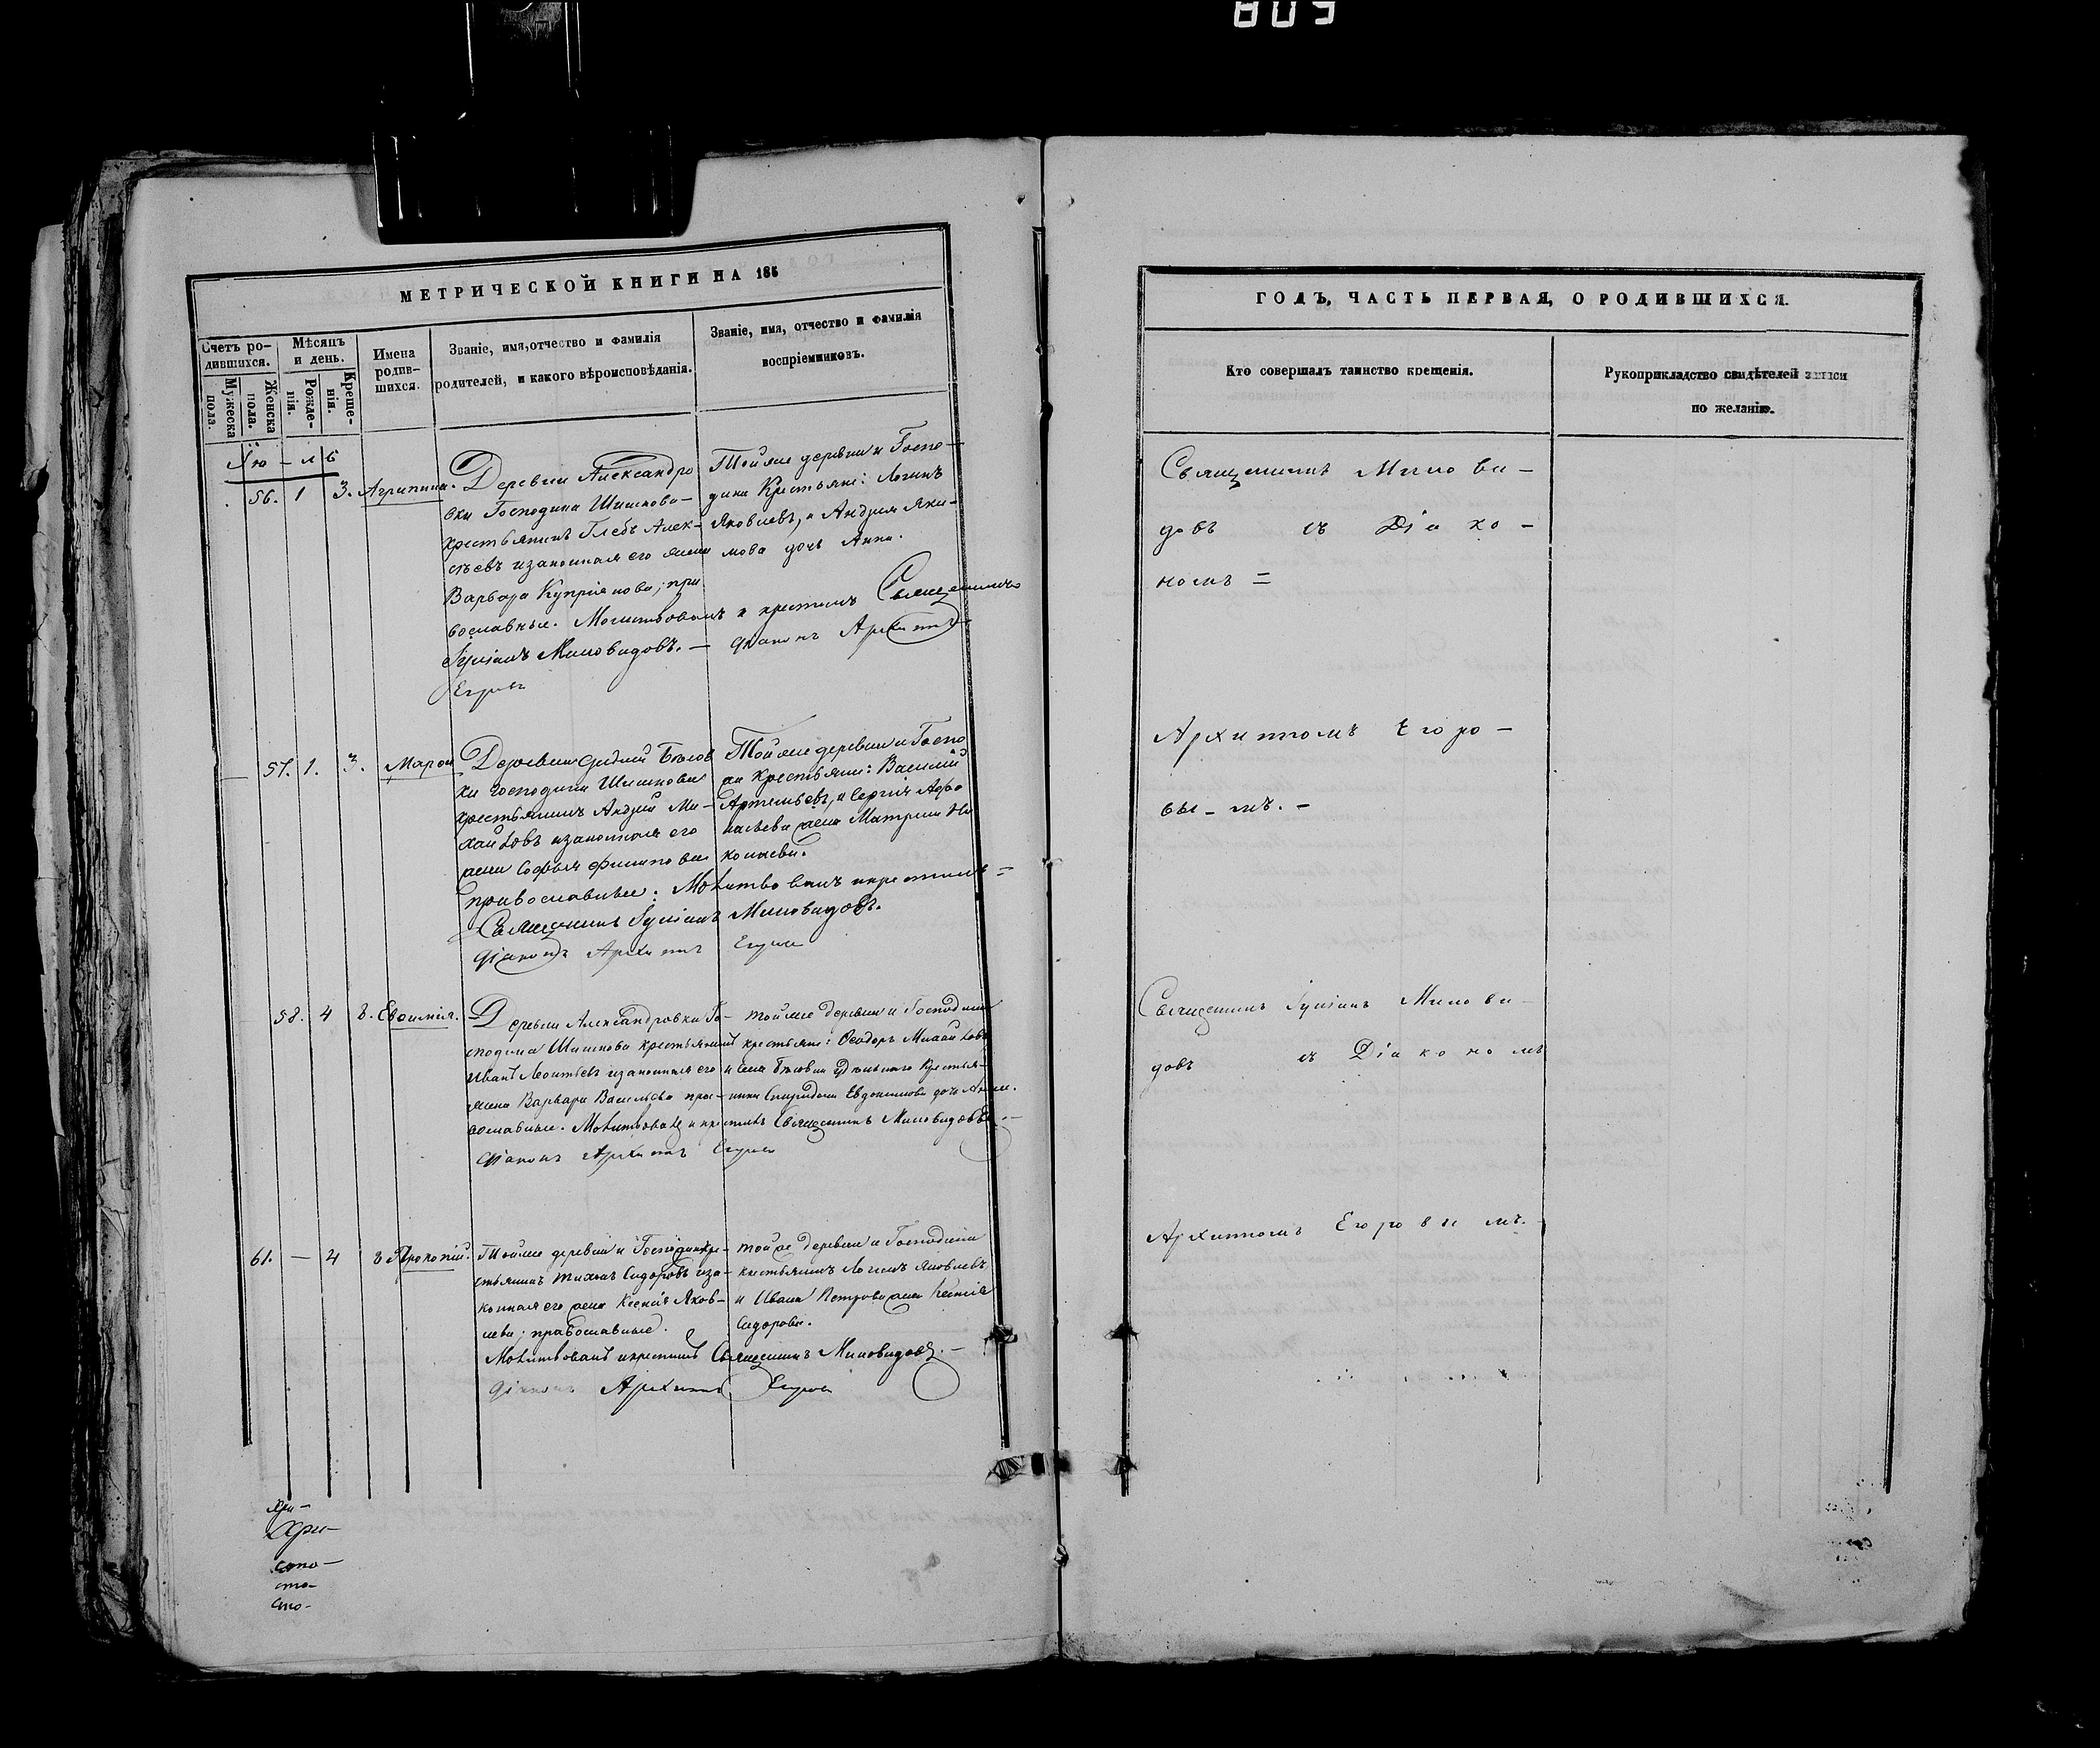 809
МЕТРИЧЕСКОЙ КНИГИ НА 185
Счетъ ро-
дившихся.
Мужеска
пола.
Женска
пола.
Мѣсяцъ
и день.
Рожде-
нія.
Креще-
нія.
Имена
родив-
шихся.
Званіе, имя, отчество и фамилія
родителей, и какого вѣроисповѣданія.
Званіе, имя, отчество и фамилія
воспріемниковъ.
Іюль
56. 1 3. Агрипина.
Деревни Александро
вки Господина Шишкова
крестьянинъ Глебъ Алек-
сѣевъ изаконная его жена
Варвара Купріянова; пра
вославные. Молитвовалъ и крестилъ Священникъ
Іуліанъ Миловидовъ. — Діаконъ Архипъ
Егоровъ
Той же деревни и Госпо-
дина Крестьяне: Логинъ
Яковлевъ, и Андрея Яки-
мова дочь Анна.
57. 1. 3. Марѳа
Деревни
ки господина Шишкова
крестьянинъ Андрей Ми-
хайловъ изаконная его
жена Софья Филипова
православные: Молитвовалъ и крестилъ =
Священникъ Іуліанъ Миловидовъ.
Діаконъ Архипъ Егоровъ
Той же деревни и Госпо
на Крестьяне: Василій
Артемьевъ, и Сергія Афо
насьева жена Матрена
58. 4 8. Евѳимія.
Деревни Александровки Го-
сподина Шишкова крестьянинъ
Иванъ Леонтьевъ изаконная его
жена Варвара Васильева пра-
вославные. Молитвовалъ и крестилъ Священникъ Миловидовъ. —
Діаконъ Архипъ Егоровъ
той же деревни и Господина
крестьяне: Ѳеодоръ Михайловъ
и села удѣльнаго Крестья-
нина Спиридона Евдокимова дочь Анна.
61. — 4 8 Прокопій.
Той же деревни и Господина кре-
стьянинъ Тихонъ Сидоровъ иза-
конная его жена Ксенія Яков-
лева; православные.
Молитвовалъ и крестилъ Священникъ Миловидовъ. —
Діаконъ Архипъ Егоровъ
той же деревни и Господина
крестьянинъ Логинъ Яковлевъ,
и Ивана Петрова жена Ксенія
Сидорова.
Хри-
Хри-
сто-
сто-
сто-
ГОДЪ, ЧАСТЬ ПЕРВАЯ, О РОДИВШИХСЯ.
Кто совершалъ таинство крещенія.
Рукоприкладство свидѣтелей записи
по желанію.
Священникъ Милови-
довъ съ Діако-
номъ =
Архипомъ Егоро-
вы-мъ. -
Священникъ Іуліанъ Милови-
довъ съ Діакономъ
Архипомъ Егоровымъ.